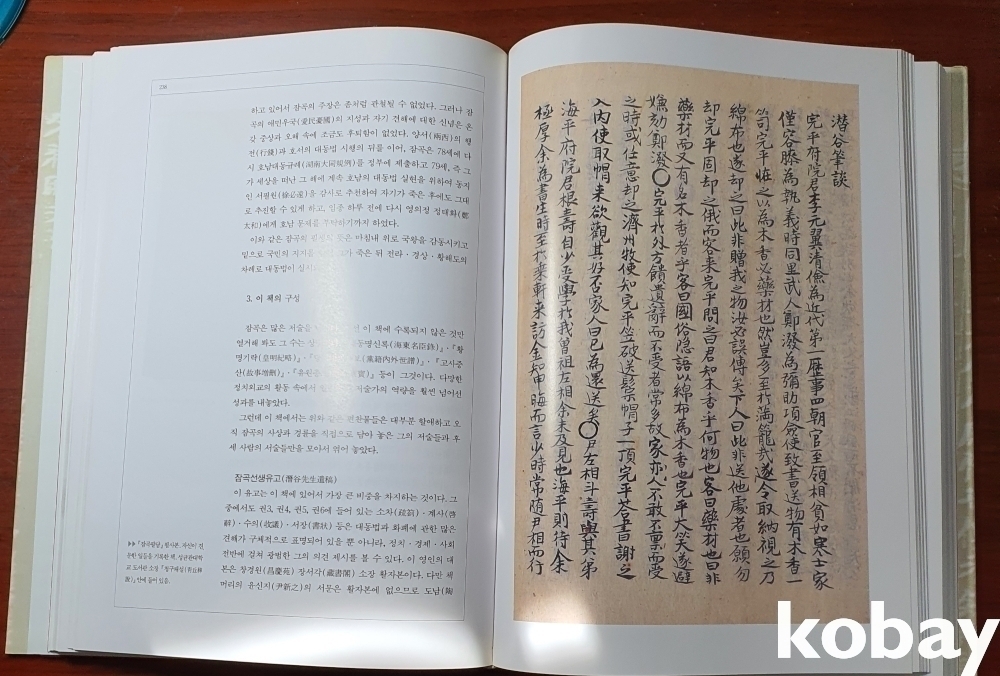 238
하고 있어서 잠곡의 주장은 좀처럼 관철될 수 없었다. 그러나 잠
곡의 애민우국(愛民憂國)의 지성과 자기 견해에 대한 신념은 온
갖 중상과 오해 속에 조금도 후퇴함이 없었다. 양서(兩西)의 행
전(行錢)과 호서의 대동법 시행의 뒤를 이어, 잠곡은 78세에 다
시 호남대동규례(湖南大同規例)를 정부에 제출하고 79세, 즉 그
가 세상을 떠난 그 해에 계속 호남의 대동법 실현을 위하여 동지
인 서필원(徐必遠)을 감사로 추천하여 자기가 죽은 후에도 그대
로 추진할 수 있게 하고, 임종 하루 전에 다시 영의정 정태화(鄭
太和)에게 호남 동체를 부탁하기까지 하였다.
이와 같은 잠곡의 뜻은 마침내 위로 국왕을 감동시키고
밑으로 국민의 지지를 죽은 뒤 전라·경상·황해도의
차례로 대동법이
3. 이 책의 구성
잠곡은 많은 저술을 이 책에 수록되지 않은 것만
열거해 봐도 그 수는 명신록(海東名臣錄)」·「황
명기략(皇明紀略)」·(黨籍內外世譜)」·「고사증
산(故事增刪)」·「유원 등이 그것이다. 다망한
정치외교의 활동 속에서 저술가의 역량을 훨씬 넘어선
성과를 내놓았다.
그런데 이 책에서는 위와 같은 전환물들은 대부분 할애하고 오
직 잠곡의 사상과 경륜을 직접으로 담아 놓은 그의 저술들과 후
세 사람의 저술들만을 모아서 엮어 놓았다.
잠곡선생유고(潛谷先生遺稿)
이 유고는 이 책에 있어서 가장 큰 비중을 차지하는 것이다. 그
중에서도 권3, 권4, 권5, 권6에 들어 있는 소차(疏箚)·계사(啓
辭)·수의(收議)·서장(書狀) 등은 대동법과 화폐에 관한 많은
견해가 구체적으로 표명되어 있을 뿐 아니라, 정치·경제·사회
전반에 걸쳐 광범한 그의 의견 제시를 볼 수 있다. 이 영인의 대
본은 창경원(昌慶苑) 장서각(藏書閣) 소장 활자본이다. 다만 책
머리의 윤신지(尹新之)의 서문은 활자본에 없으므로 도남(陶
▶▶「잠곡필담」필사본. 자신이 견
문한 일들을 기록한 책. 성균관대학
교 도서관 소장 「청구패설(靑丘稗
說)」안에 들어 있음.
潜谷筆談
完平府院君李元翼清儉為近代第一歷事四朝官至領相貧如寒士家
僅容膝為執義時同里武人鄭潑為彌助項僉使致書送物有木香一
笥完平恠之以為木香必藥材也然豈多至於滿籠哉遂令取納視之乃
綿布也遂却之曰此非贈我之物汝必誤傳矣下人曰此非送他處者也願勿
却完平固却之俄而客来完平問之曰君知木香乎何物也客曰藥材也曰非
藥材而又有多木香者乎客曰國俗隱語以綿布為木香也完平大笑遂避
嫌劾鄭潑○完平於外方饋遺辭而不受者常多故家亦人不敢不稟而受
之時或任意却之濟州牧使知完平笠破送鬃帽子一頂完平答書曰謝之
入内使取帽来欲觀其好否家人曰已為還送矣○尹左相斗壽與其弟
海平府院君根壽自少受學於我曾祖左相余未及見也海平則待余
極厚余為書生時至於乘軒来訪金知申晦而言少時常随尹相而行
kobay